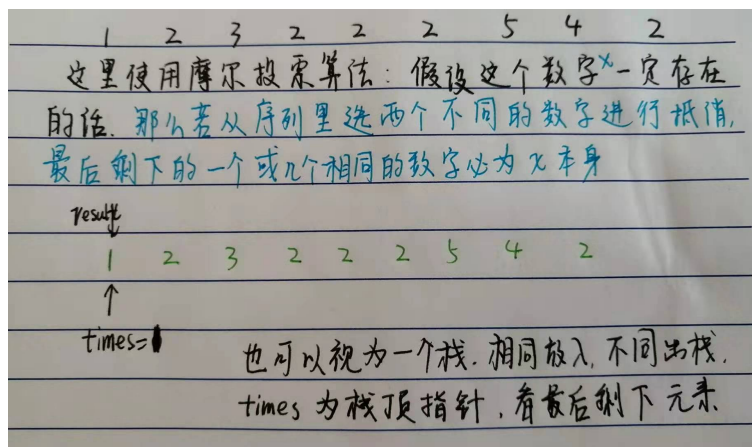 1 2 3 2 2 2 5 4 2
这里使用摩尔投票算法：假设这个数字x一定存在
的话.那么若从序列里选两个不同的数字进行抵消,
最后剩下的一个或几个相同的数字必为x本身
result
1 2 3 2 2 2 5 4 2
times=
也可以视为一个栈.相同放入,不同出栈.
times 为栈顶指针,看最后剩下元素.